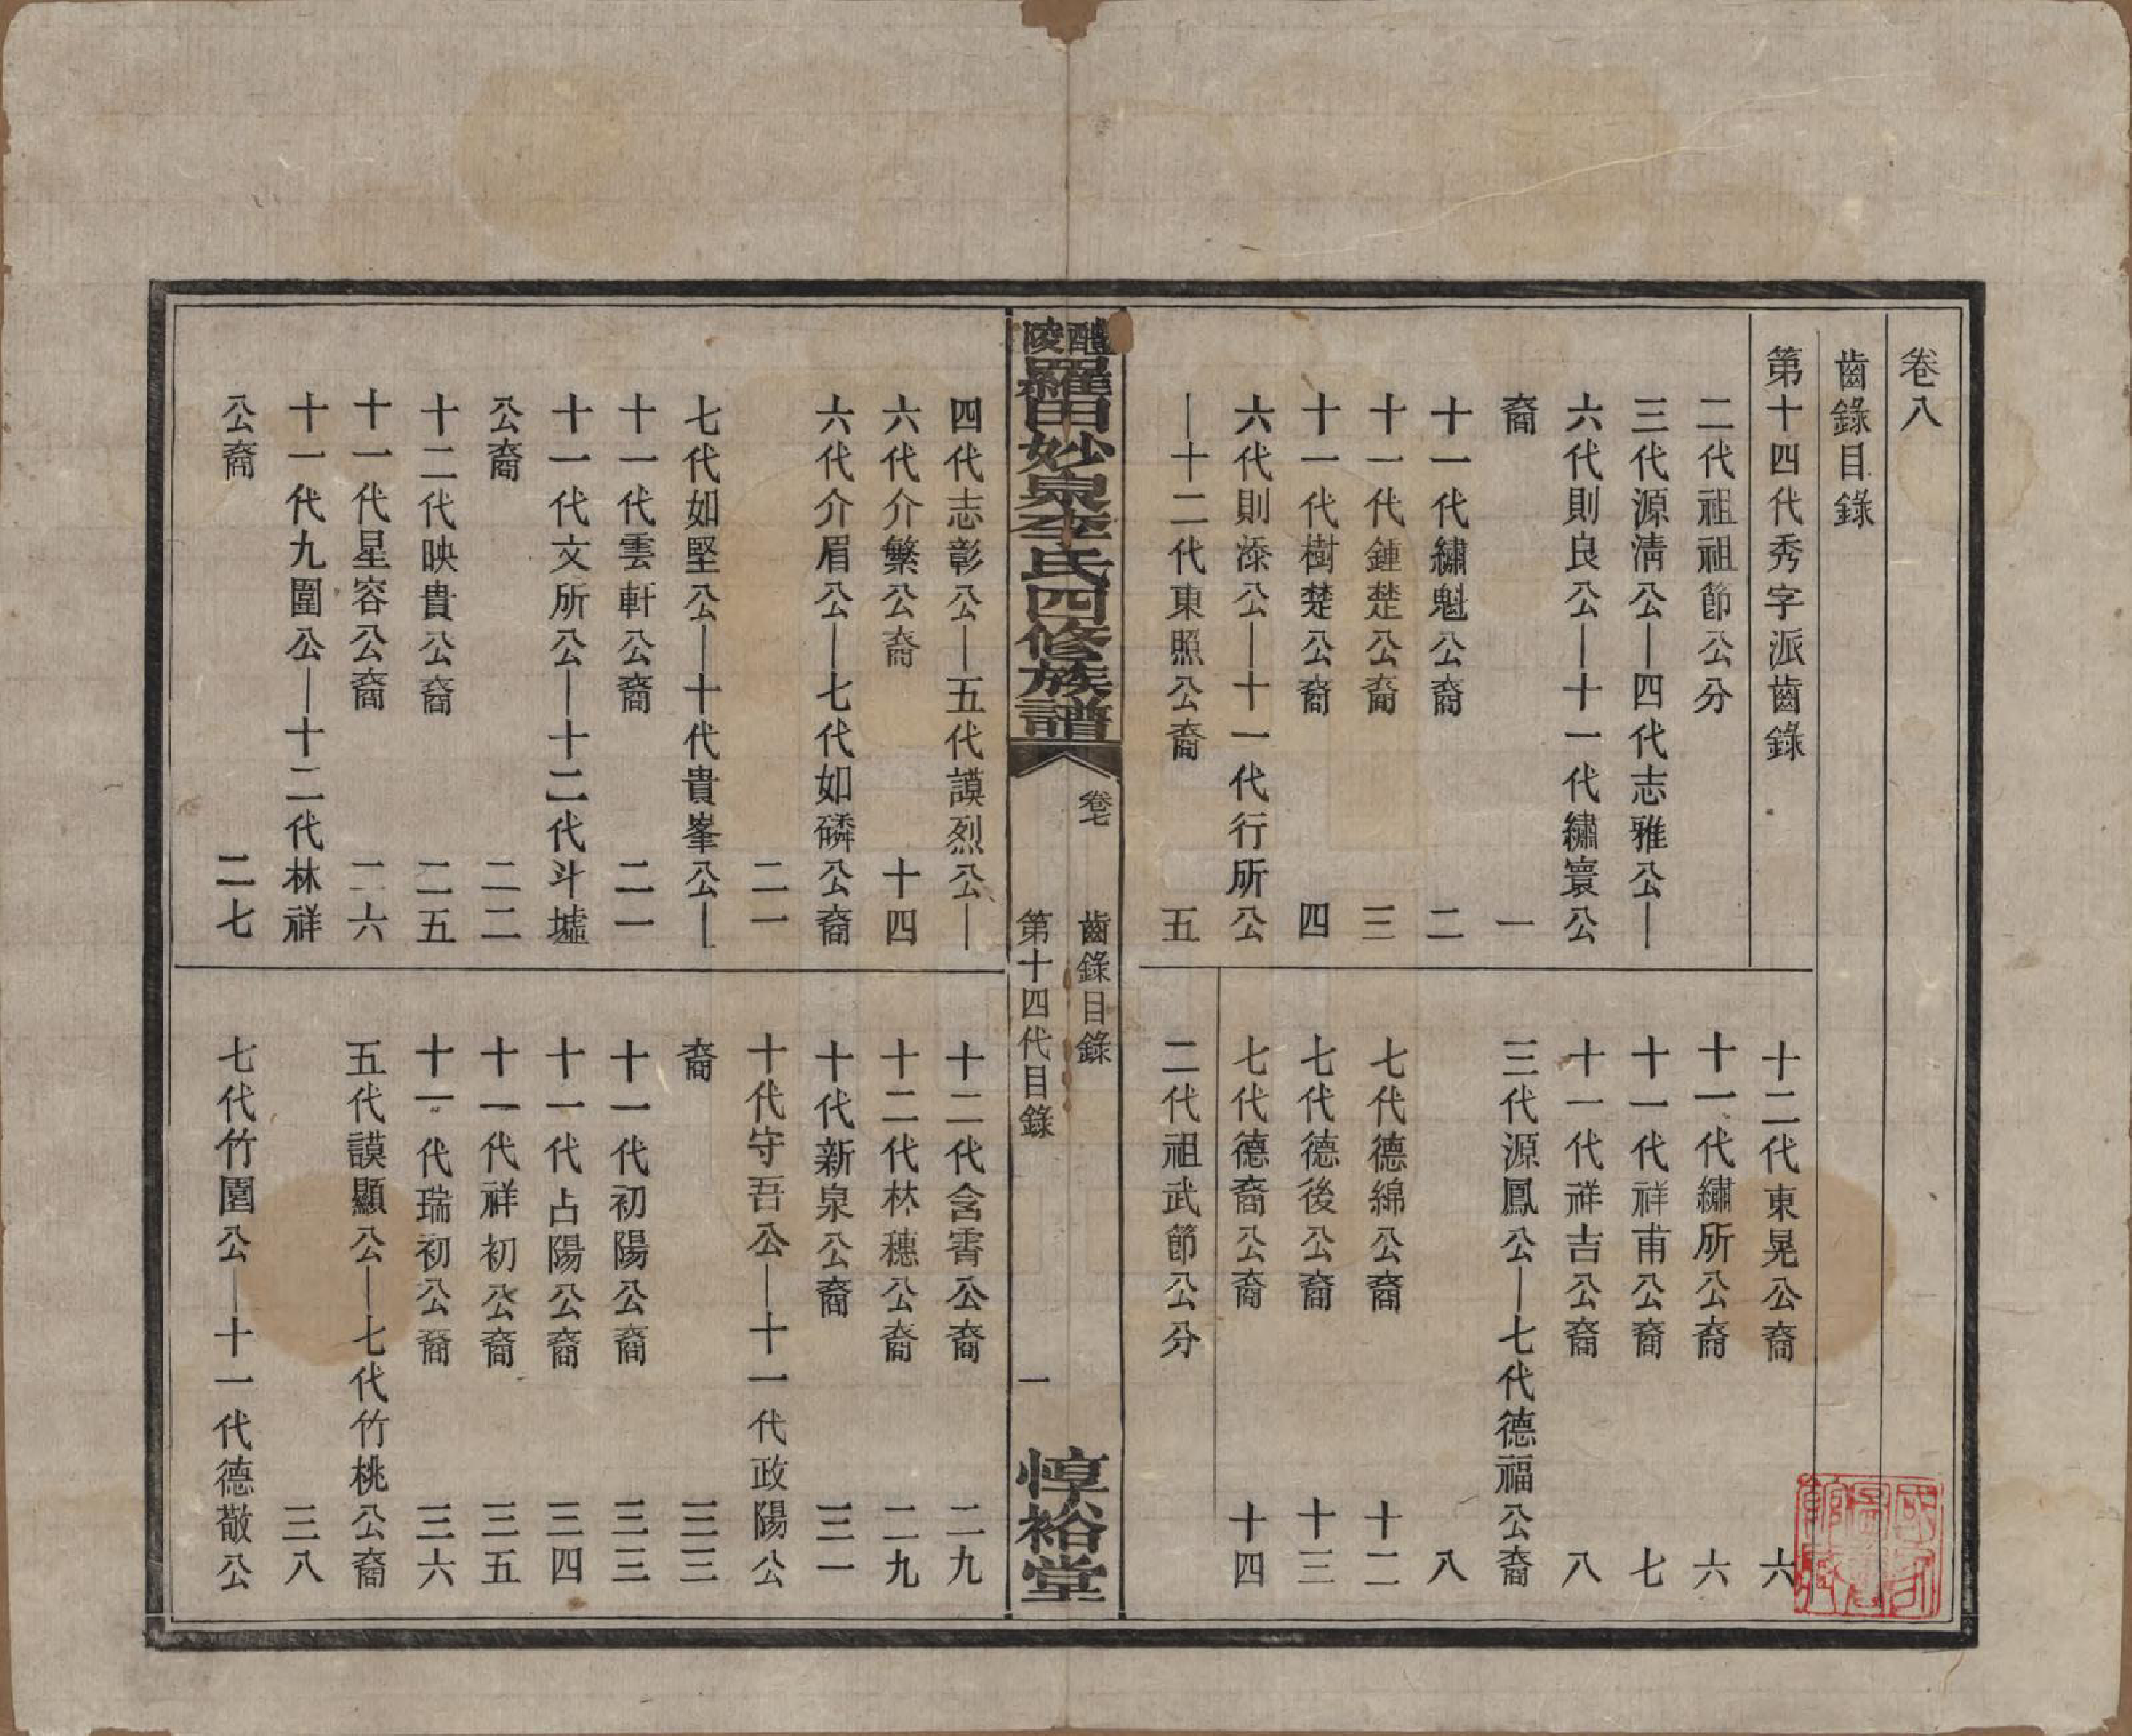 卷八
齒錄目錄
第十四代秀字派齒錄
二代祖祖節公分
三代源淸公—四代志雅公—
六代則良公—十一代繡寰公
裔 一
十一代繡魁公裔 二
十一代鍾楚公裔 三
十一代樹楚公裔 四
六代則添公—十一代行所公
—十二代東照公裔 五
十二代東晃公裔 六
十一代繡所公裔 六
十一代祥甫公裔 七
十一代祥吉公裔 八
三代源鳳公—七代德福公裔
八
七代德綿公裔 十二
七代德後公裔 十三
七代德裔公裔 十四
二代祖武節公分
醴陵
羅田妙泉李氏四修族譜
卷七
齒錄目錄
第十四代目錄
一
惇裕堂
四代志彰公—五代謨烈公—
六代介繁公裔 十四
六代介眉公—七代如磷公裔
二一
七代如堅公—十代貴峯公—
十一代雲軒公裔 二一
十一代文所公—十二代斗墟
公裔 二二
十二代映貴公裔 二五
十一代星容公裔 二六
十一代九圍公—十二代林祥
公裔 二七
十二代含霄公裔 二九
十二代林穗公裔 二九
十代新泉公裔 三一
十代守吾公—十一代政陽公
裔 三三
十一代初陽公裔 三三
十一代占陽公裔 三四
十一代祥初公裔 三五
十一代瑞初公裔 三六
五代謨顯公—七代竹桃公裔
三八
七代竹圍公—十一代德敬公